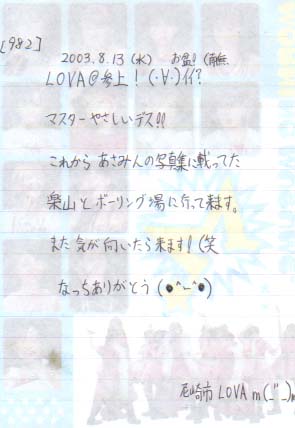 [982]
2003.8.13(水) お盆!(南無
LOVA@参上!(・∀・)イイ?
マスターやさしいデス!!
これから あさみんの写真集に載ってた
楽山とボーリング場に行って来ます。
また気が向いたら来ます!(笑
なっちありがとう(●^ー^●)
尼崎市 LOVA m(_"_)m